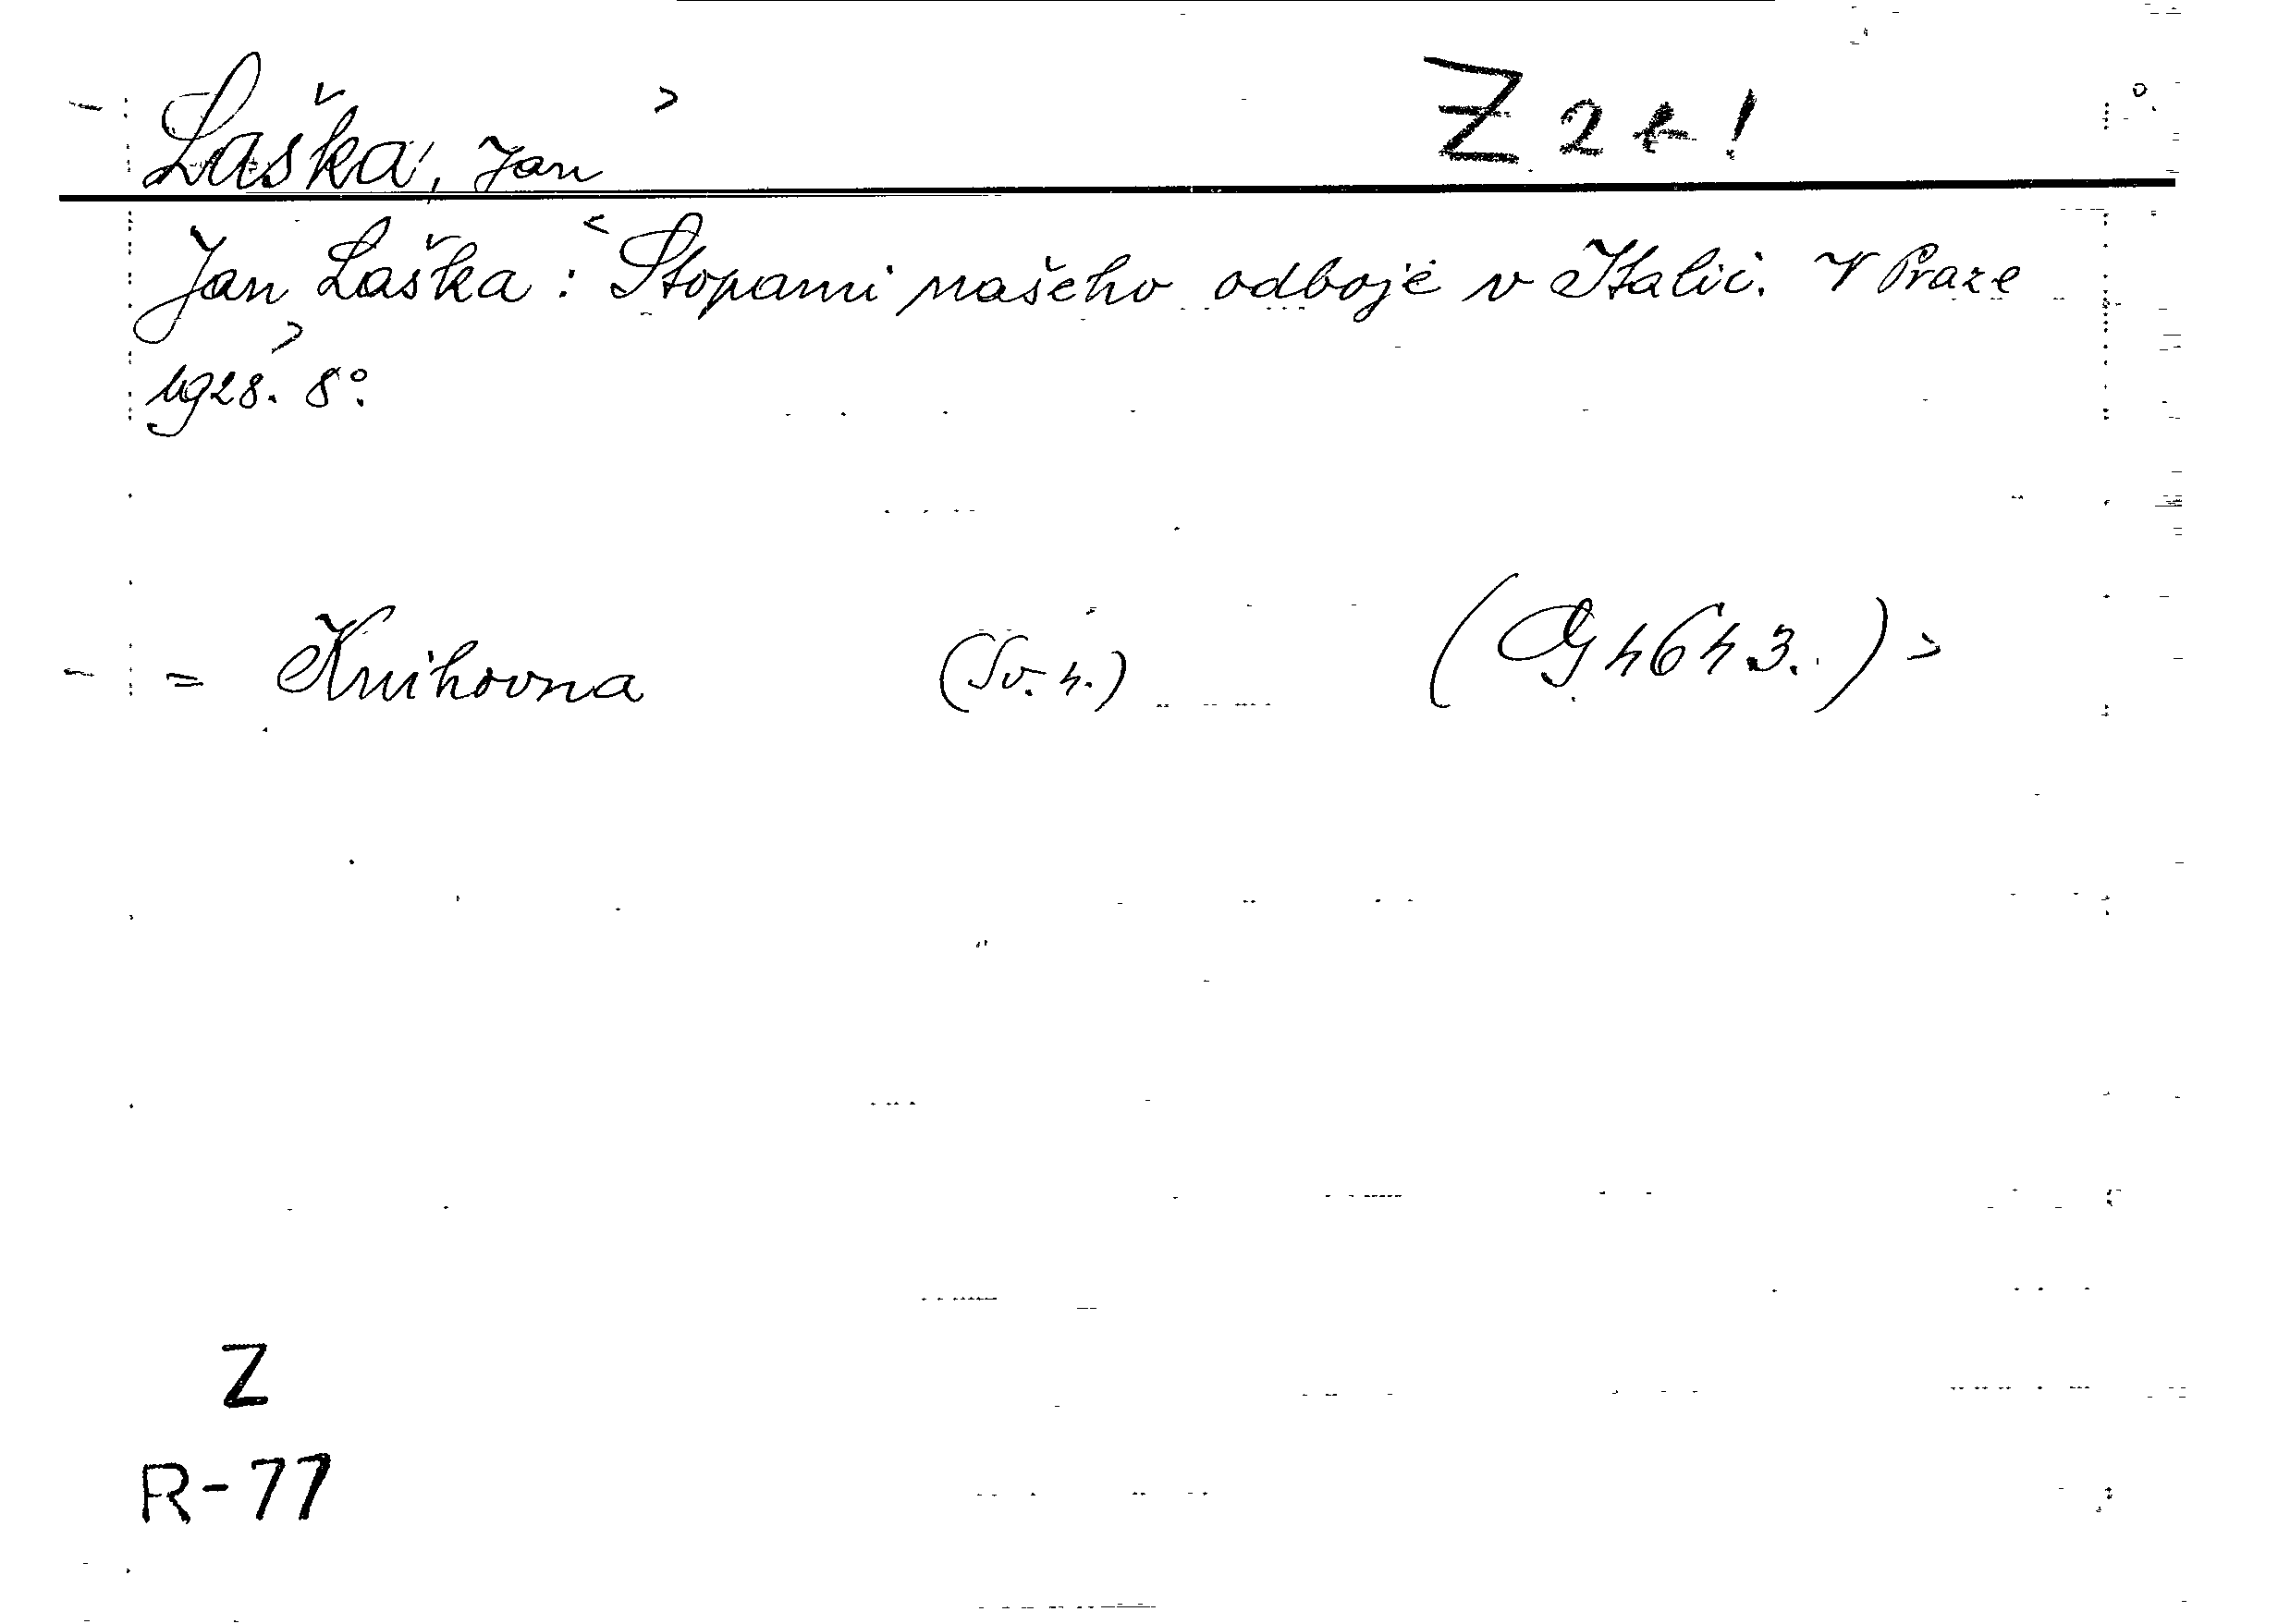 Laška, Jan
Jan Laška: Stopami našeho odboje v Italii. V Praze
1928. 8°.
= Knihovna (Sv. 4.) (G 4643.)
Z
R-77